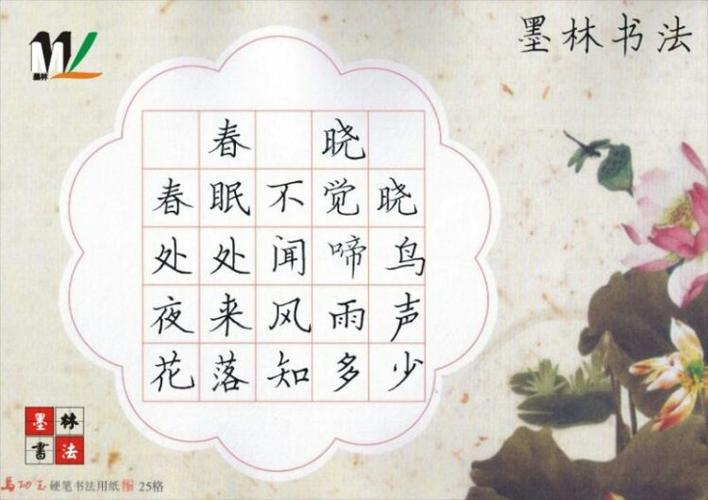 墨林书法
墨林
春晓
春眠不觉晓
处处闻啼鸟
夜来风雨声
花落知多少
墨林
书法
硬笔书法用纸 25格